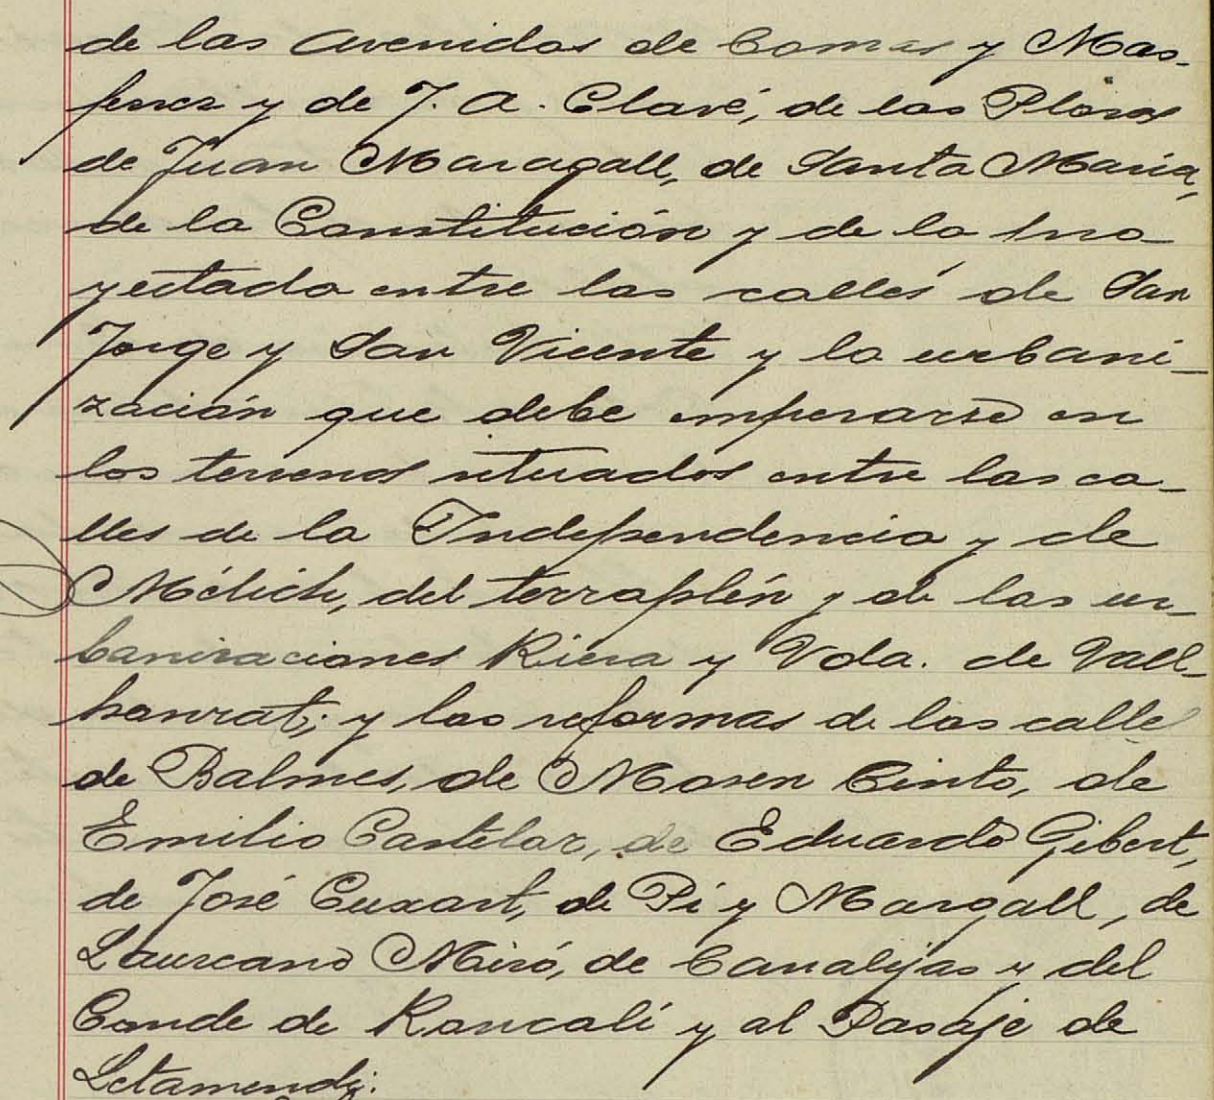 de las Avenidas de Comas y Mas-
ferrer y de J. A. Clavé, de las Plazas
de Juan Maragall, de Santa María,
de la Constitución y de la pro-
yectada entre las calles de San
Jorge y San Vicente y la urbani-
zación que debe emperarse en
los terrenos situados entre las ca-
lles de la Independencia y de
Mélich, del terraplén y de las ur-
banizaciones Riera y Vda. de Vall-
honrat; y las reformas de las calle
de Balmes, de Mosen Cinto, de
Emilio Castelar, de Eduardo Gibert,
de José Cuxart, de Pi y Margall, de
Laureano Miró, de Canalejas y del
Conde de Roncali y al Pasaje de
Letamendi.